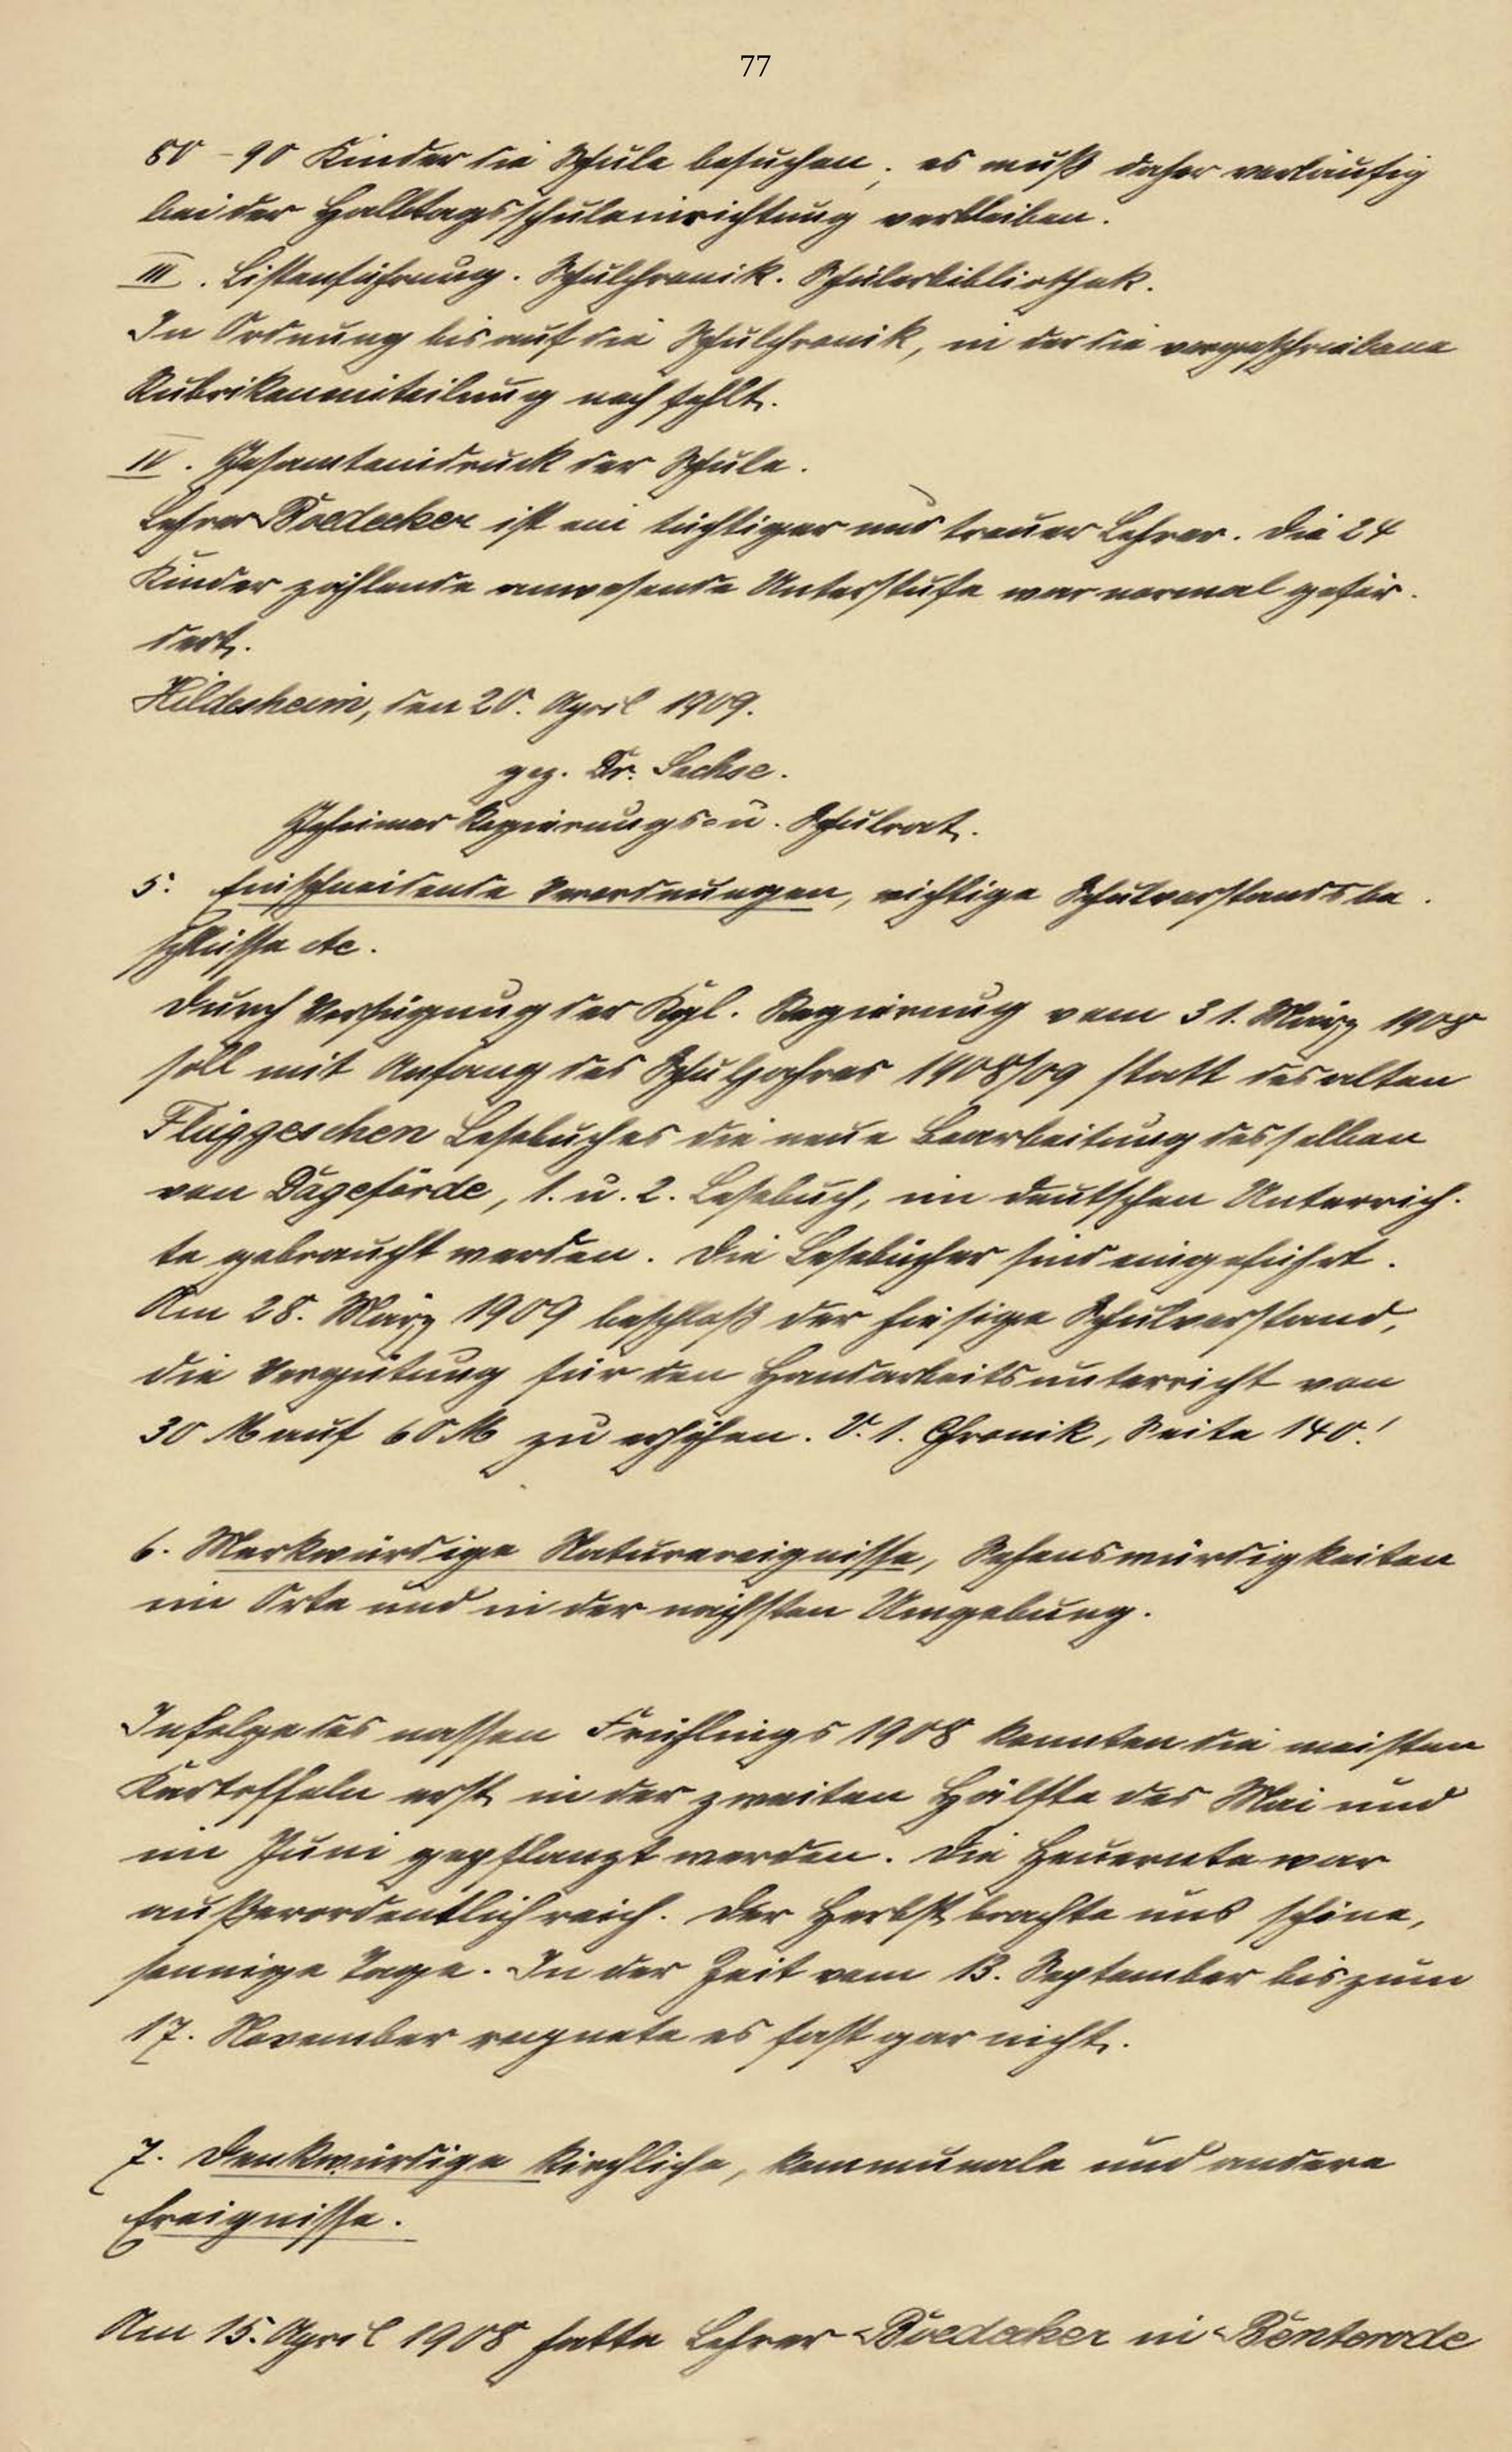 77
80 - 90 Kinder die Schule besuchen; es muß daher vorläufig
bei der Halbtagsschuleinrichtung verbleiben.
III. Listenführung. Schulchronik. Schülerbibliothek.
In Ordnung bis auf die Schulchronik, in der die vorgeschriebene
Rubrikeneinteilung noch fehlt.
IV. Gesamteindruck der Schule.
Lehrer Boedecker ist ein tüchtiger und treuer Lehrer. Die 24
Kinder zählende anwesende Unterstufe war normal geför-
dert.
Hildesheim, den 20. April 1909.
gez. Dr. Sachse.
Geheimer Regierungs- u. Schulrat.
5. Einschneidende Verordnungen, wichtige Schulvorstandsbe-
schlüsse etc.
Durch Verfügung der Kgl. Regierung vom 31. März 1908
soll mit Anfang des Schuljahres 1908/09 statt des alten
Flüggeschen Lesebuches die neue Bearbeitung desselben
von Dageförde, 1. u. 2. Lesebuch, im deutschen Unterrich-
te gebraucht werden. Die Lesebücher sind eingeführt.
Am 28. März 1909 beschloß der hiesige Schulvorstand,
die Vergütung für den Handarbeitsunterricht von
30 M auf 60 M zu erhöhen. V. 1. Chronik, Seite 140!
6. Merkwürdige Naturereignisse, Sehenswürdigkeiten
im Orte und in der nächsten Umgebung.
Infolge des nassen Frühlings 1908 konnten die meisten
Kartoffeln erst in der zweiten Hälfte des Mai und
im Juni gepflanzt werden. Die Heuernte war
außerordentlich reich. Der Herbst brachte uns schöne,
sonnige Tage. In der Zeit vom 13. September bis zum
17. November regnete es fast gar nicht.
7. Denkwürdige kirchliche, kommunale und andere
Ereignisse.
Am 15. April 1908 hatte Lehrer Boedecker in Benterode